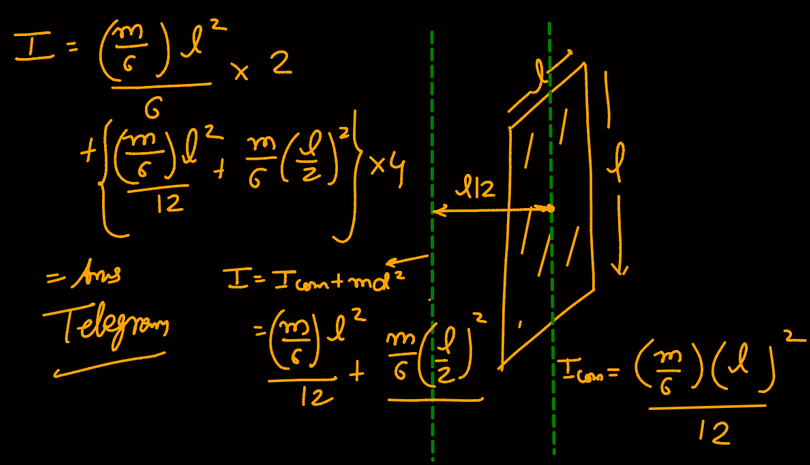 I = (m/6) l² / 6 × 2
+ { (m/6) l² / 12 + m/6 (l/2)² } × 4
= Ans
Telegram
I = I com + md²
= (m/6) l² / 12 + m/6 (l/2)²
l
l
l/2
I com = (m/6) (l)² / 12